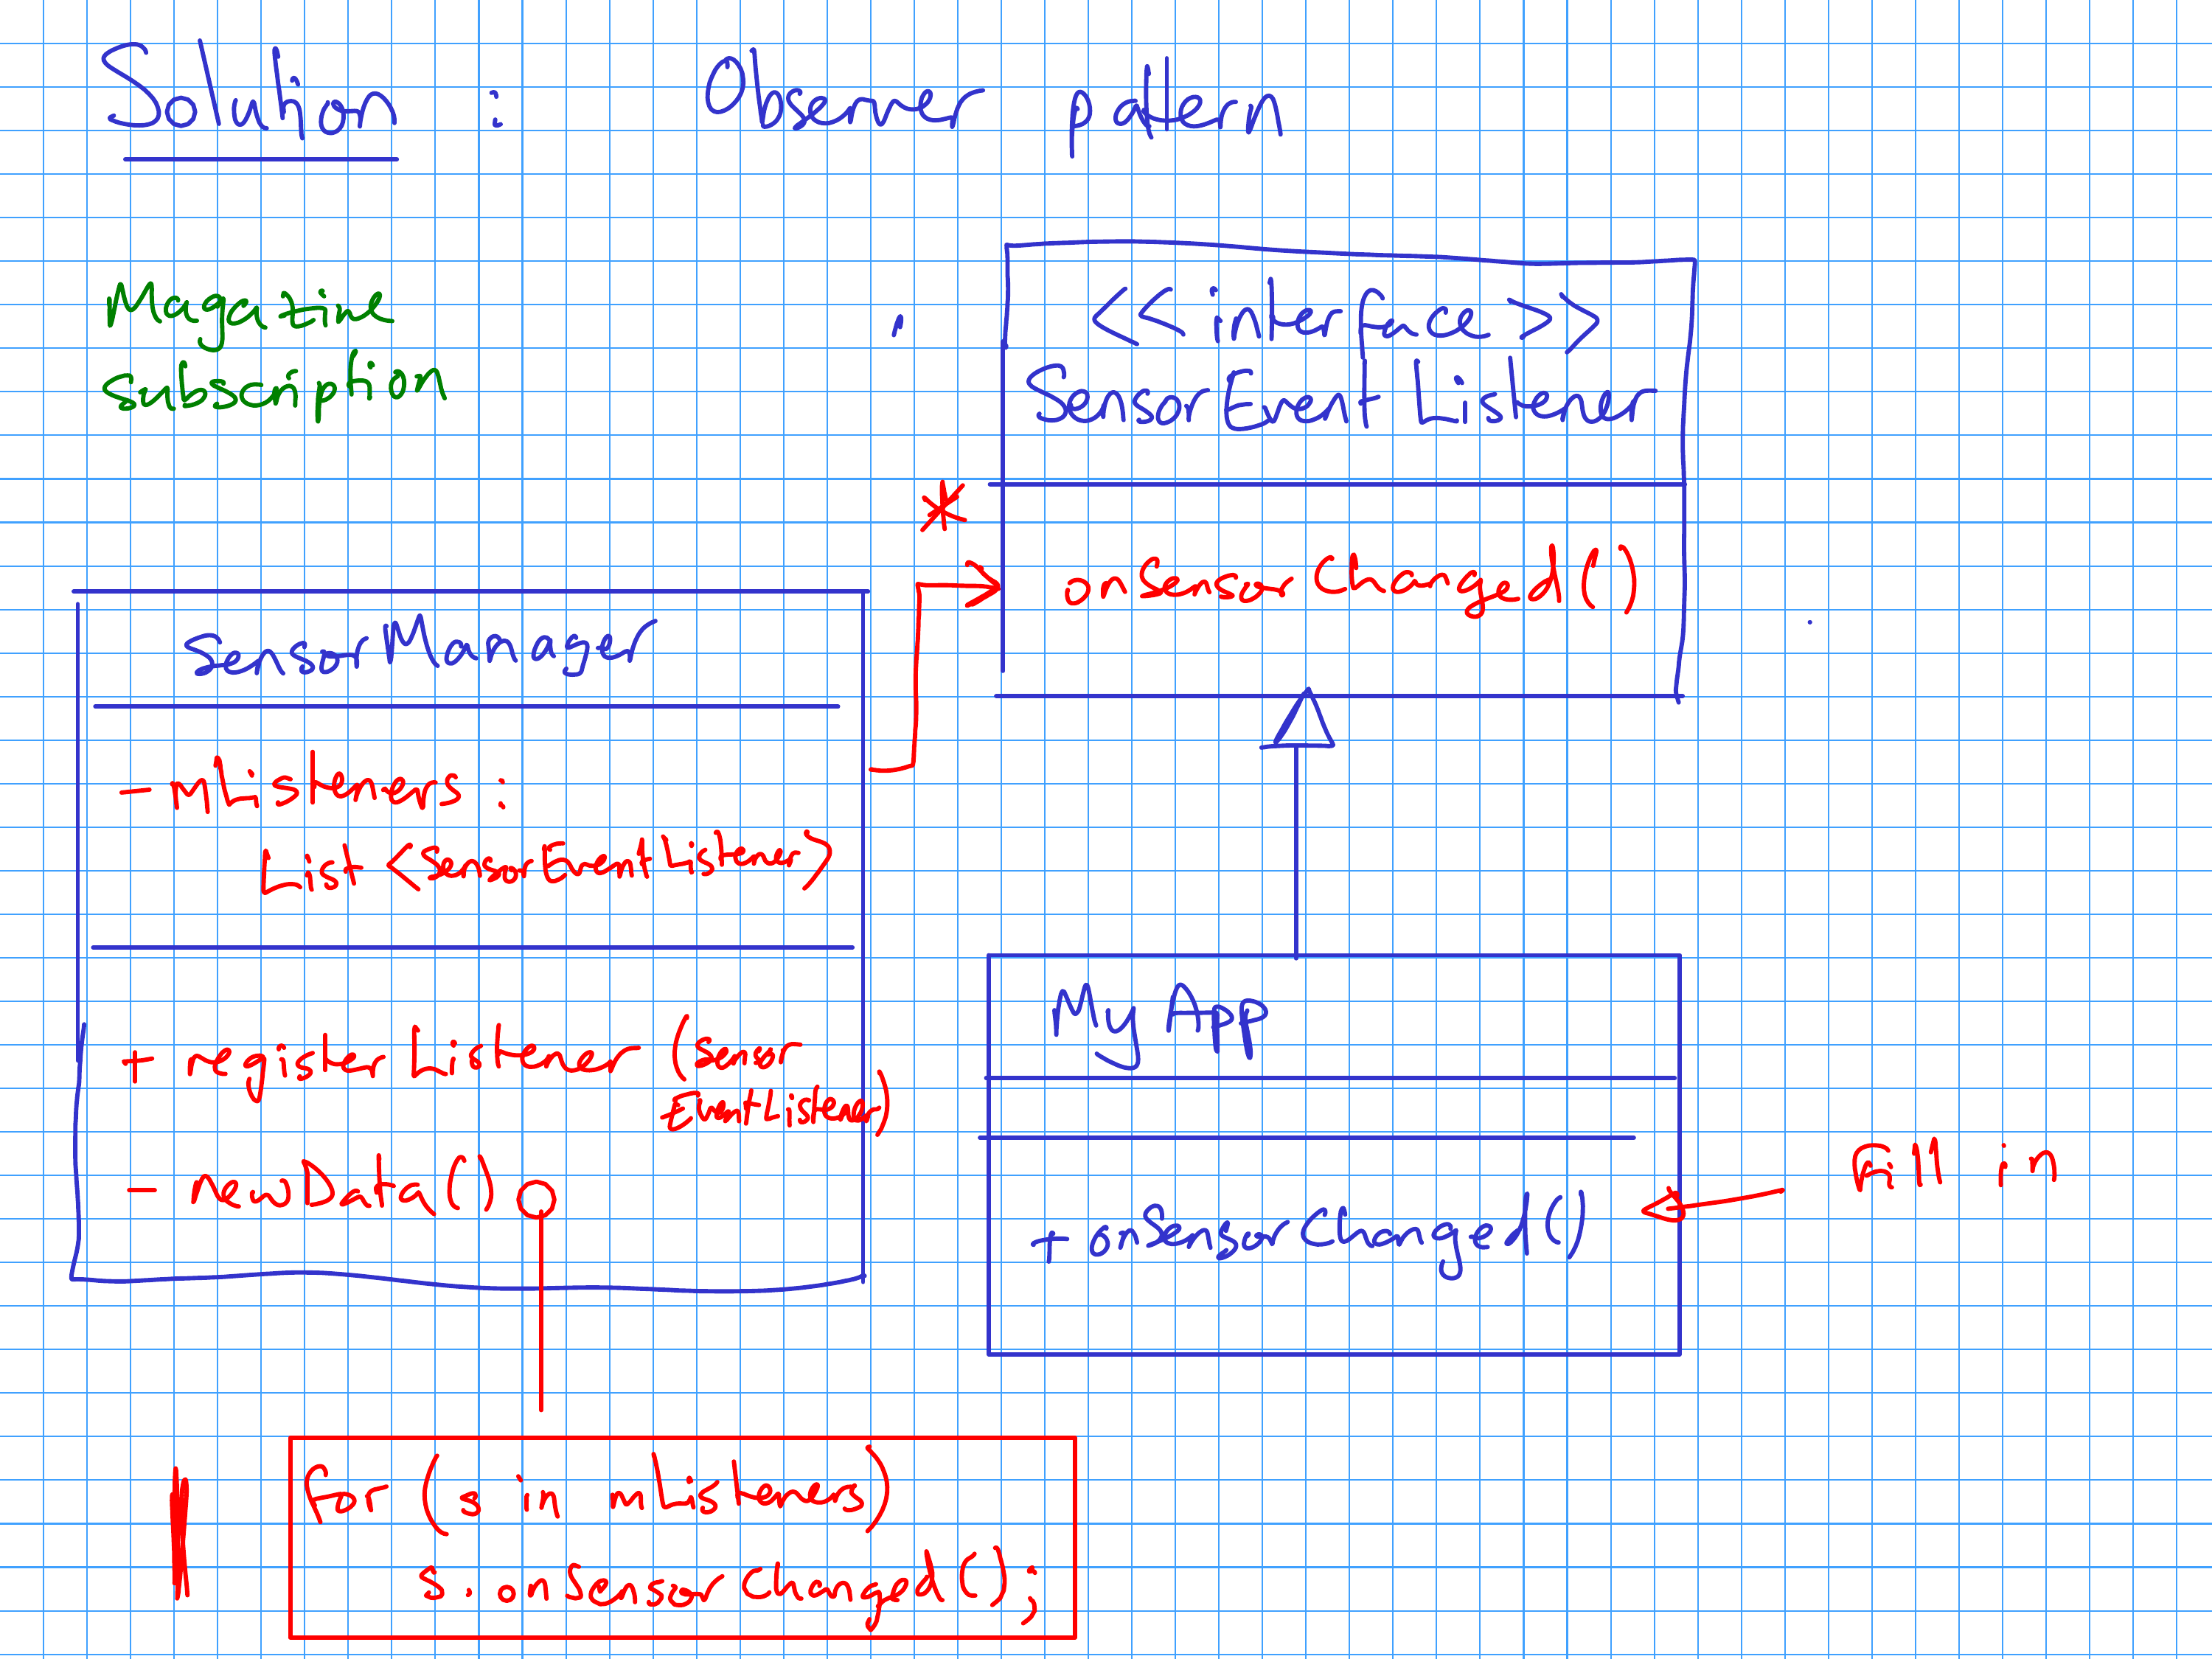 Solution : Observer pattern
Magazine
subscription
<<interface>>
SensorEventListener
*
onSensorChanged()
SensorManager
- mListeners :
List <SensorEventListener>
+ registerListener (Sensor
EventListener)
- newData()
My App
+ onSensorChanged()
Fill in
for (s in mListeners)
s.onSensorChanged();